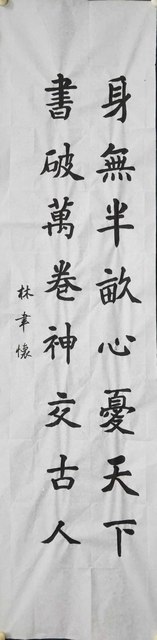 身無半畝心憂天下
書破萬卷神交古人
林聿懷